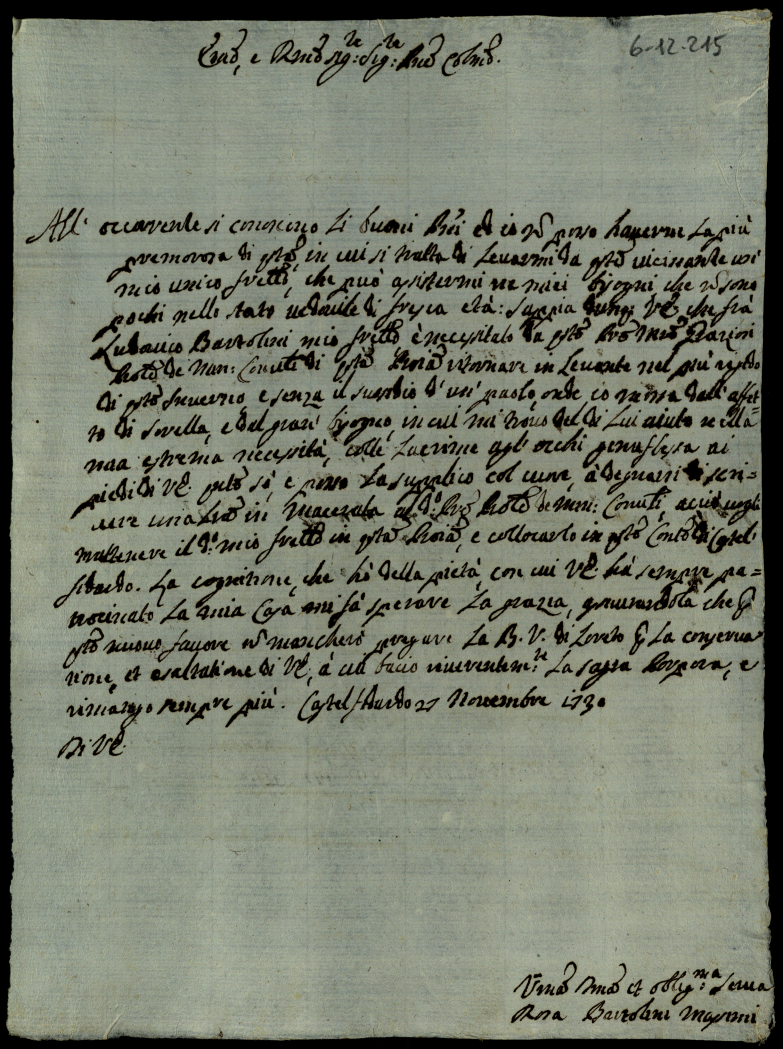 6-12-215
Em͞o, e Rm͞o Sig:re Sig:re Pn͞e Colm͞o.
All' occorrente si conoscono li buoni Pn͞i ed io n͞o posso haverne la più
premorosa di qst͞a, in cui si tratta di levarmi da qst͞e vicinanze un
mio unico frell͞o, che può asistermi ne miei bisogni che n͞o sono
pochi nello stato vedovile di fresca età: Sappia dunq; V͞E che frà
Ludovico Bartolini mio frell͞o è necessitato da qst͞o Pr͞e
de Min: Conv:ti di qst͞a Prov͞a ritornare in Levante nel più rigido
di qst͞o Inverno e senza il susidio d'un' paolo, onde io mossa dall' affet=
to di sorella, e dal gran' bisogno, in cui mi trovo del di Lui aiuto nella
mia estrema necessità, colle lacrime agl' occhi genuflessa ai
piedi di V͞E quto sò, e posso la supplico col cuore, à degnarsi di scri=
vere una lr͞a in Macerata al d:o Pr͞e de Min: Conv:ti, acciò vogli
mattenere il d:o mio frell͞o in qst͞a Prov͞a, e collocarlo in qst͞o Conv͞to di Castel
fidardo. La cognitione, che hò della pietà, con cui V͞E hà sempre pa=
trocinato la mia Casa mi fà sperare la grazia, che p͞
qst͞o nuovo favore n͞o mancherò pregare la B. V. di Loreto p͞ la conserva
tione, et esaltatione di V͞E, à cui bacio riverentem:te la sagra Porpora, e
rimango sempre più. Castelfidardo 27 Novembre 1730
Di V͞E
Um͞a Dm͞a et oblig:ma Serva
Rosa Bartolini Massimi